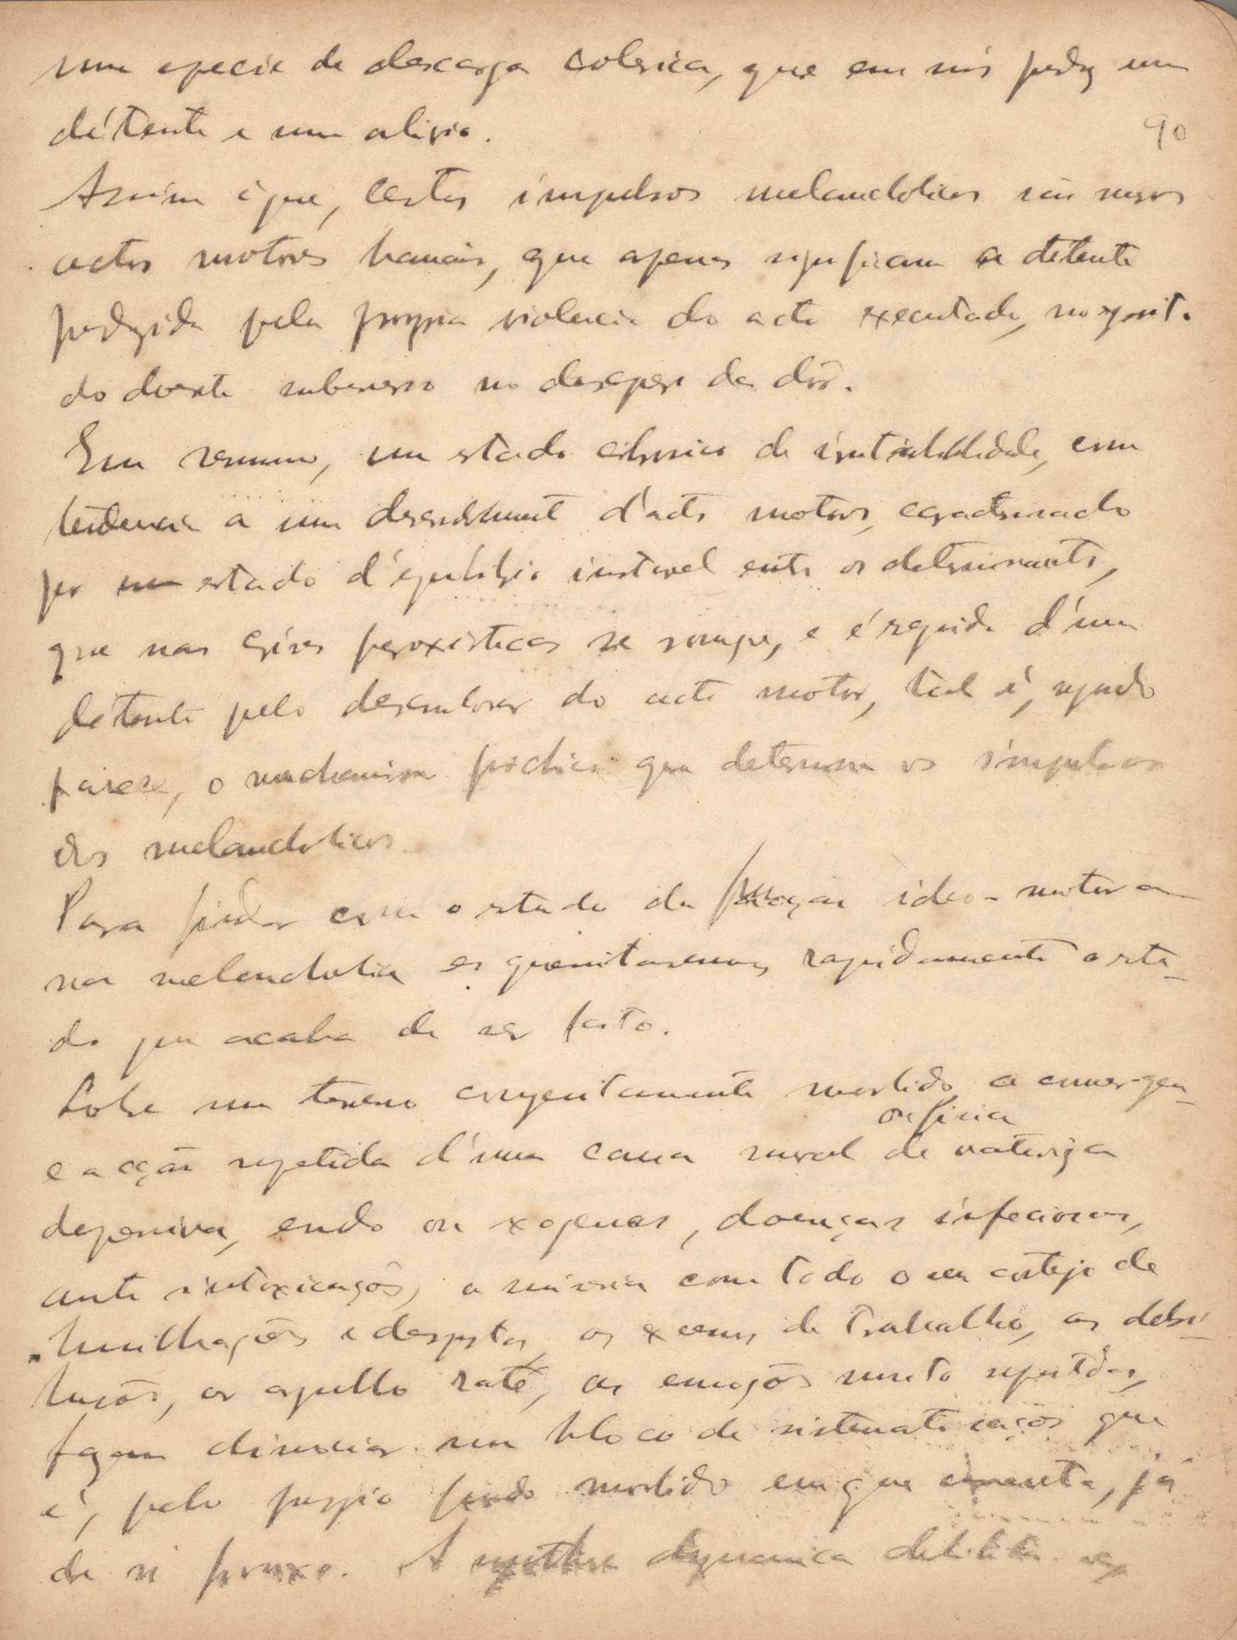 uma especie de descarga colerica, que em nós produz um
détente e um alivio.
90
Assim é que, certos impulsos melancholicos são meros
actos motores banais, que apenas significam a detente
produzida pela propria violencia do acto executado, no espirito
do doente submerso no desespero da dôr.
Em resumo, um estado chronico de irritabilidade, com
tendencia a um desenvolvimento d'actos motores, caracterisado
por um estado d'equilibrio instavel entre os determinantes,
que nas crises paroxisticas se rompe, e é seguido d'uma
détente pelo desenrolar do acto motor, tal é, segundo
parece, o mechanismo psichico que determina os impulsos
dos melancholicos.
Para findar com o estudo da funcção ideo-motora
na melancholia esquematisemos rapidamente o estu-
do que acaba de ser feito.
Sobre um terreno congenitamente morbido a convergen-
orgânica
e acção repetida d'uma causa moral de natureza
depressiva, endo ou exogenas, doenças infeciosas,
auto intoxicações, a miseria com todo o seu cortejo de
humilhações e desgostos, os excessos de trabalho, as desil-
lusões, os orgulho raté, as emoções muito repetidas,
fazem dissociar um bloco de sistematisações que
é, pelo proprio fundo morbido em que assenta, já
de si frouxo. A dynamica debilita-se,